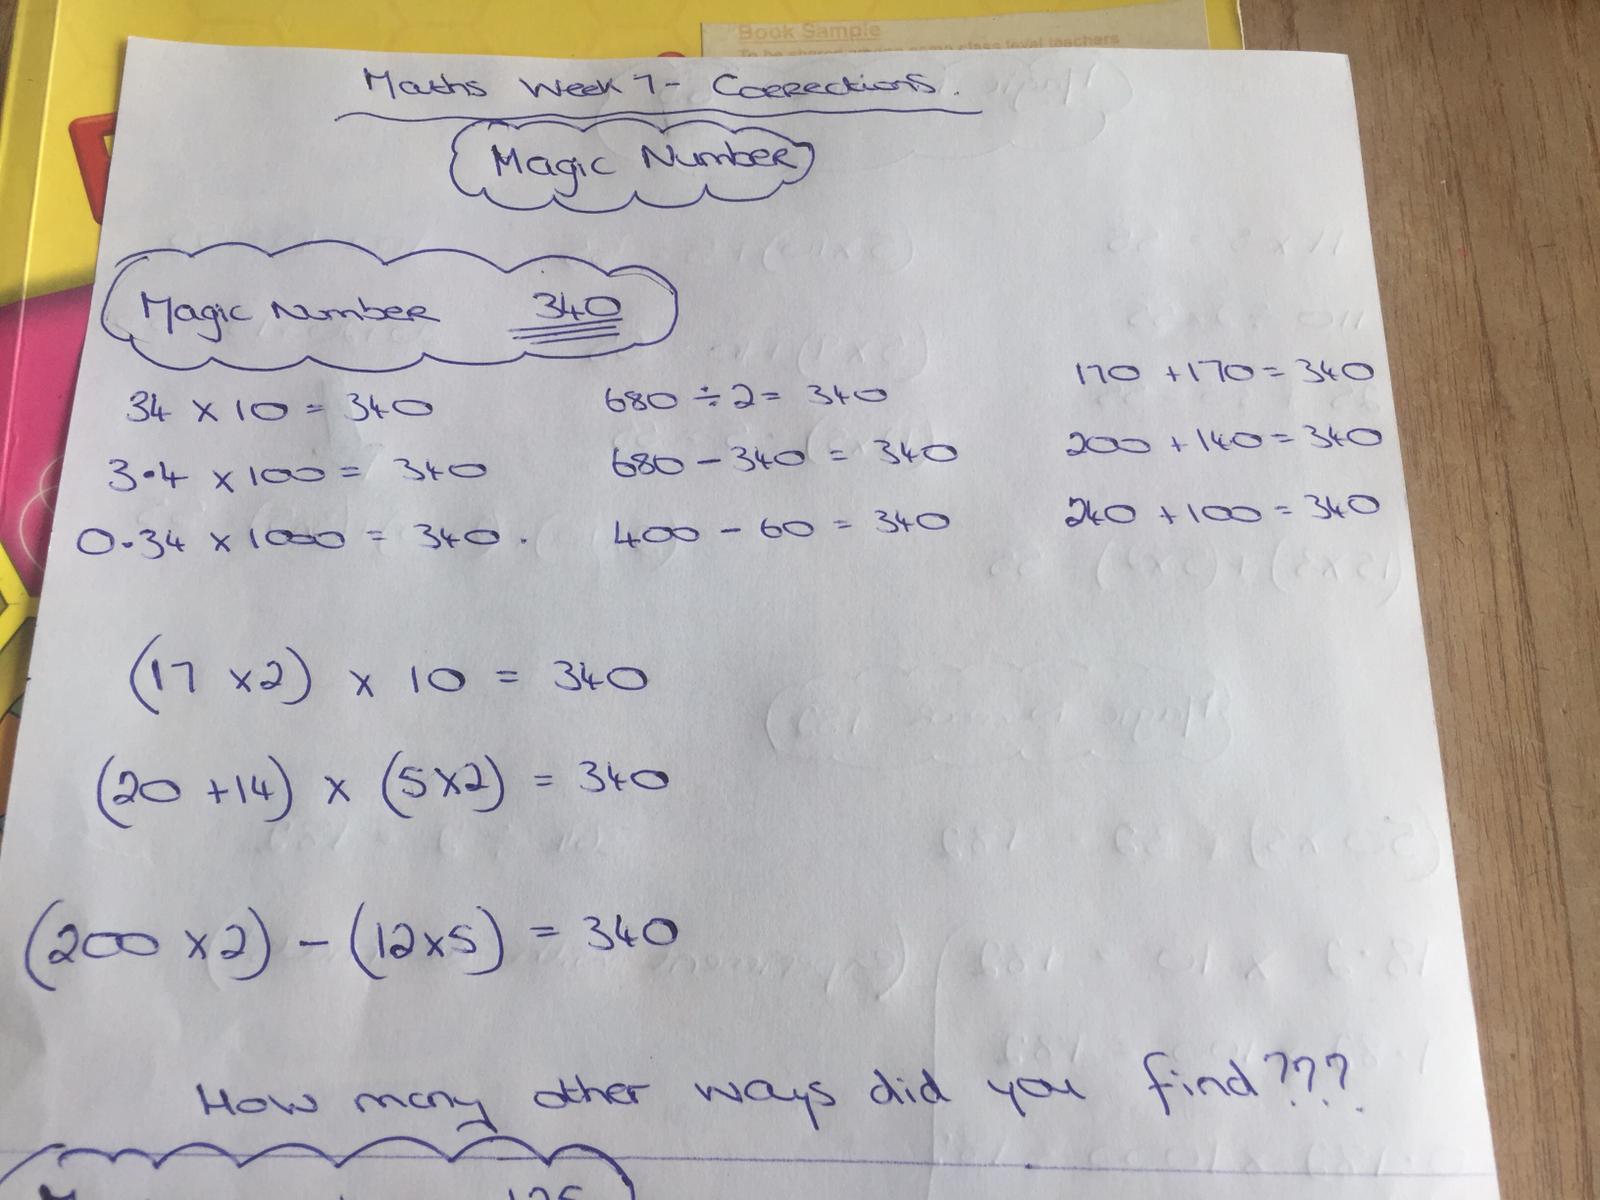 Book Sample
To be shared among same class level teachers
Maths Week 7 - Corrections.
Magic Number
Magic Number 340
34 x 10 = 340
3.4 x 100 = 340
0.34 x 1000 = 340.
680 ÷ 2 = 340
680 - 340 = 340
400 - 60 = 340
170 + 170 = 340
200 + 140 = 340
240 + 100 = 340
(17 x 2) x 10 = 340
(20 + 14) x (5 x 2) = 340
(200 x 2) - (12 x 5) = 340
How many other ways did you find???